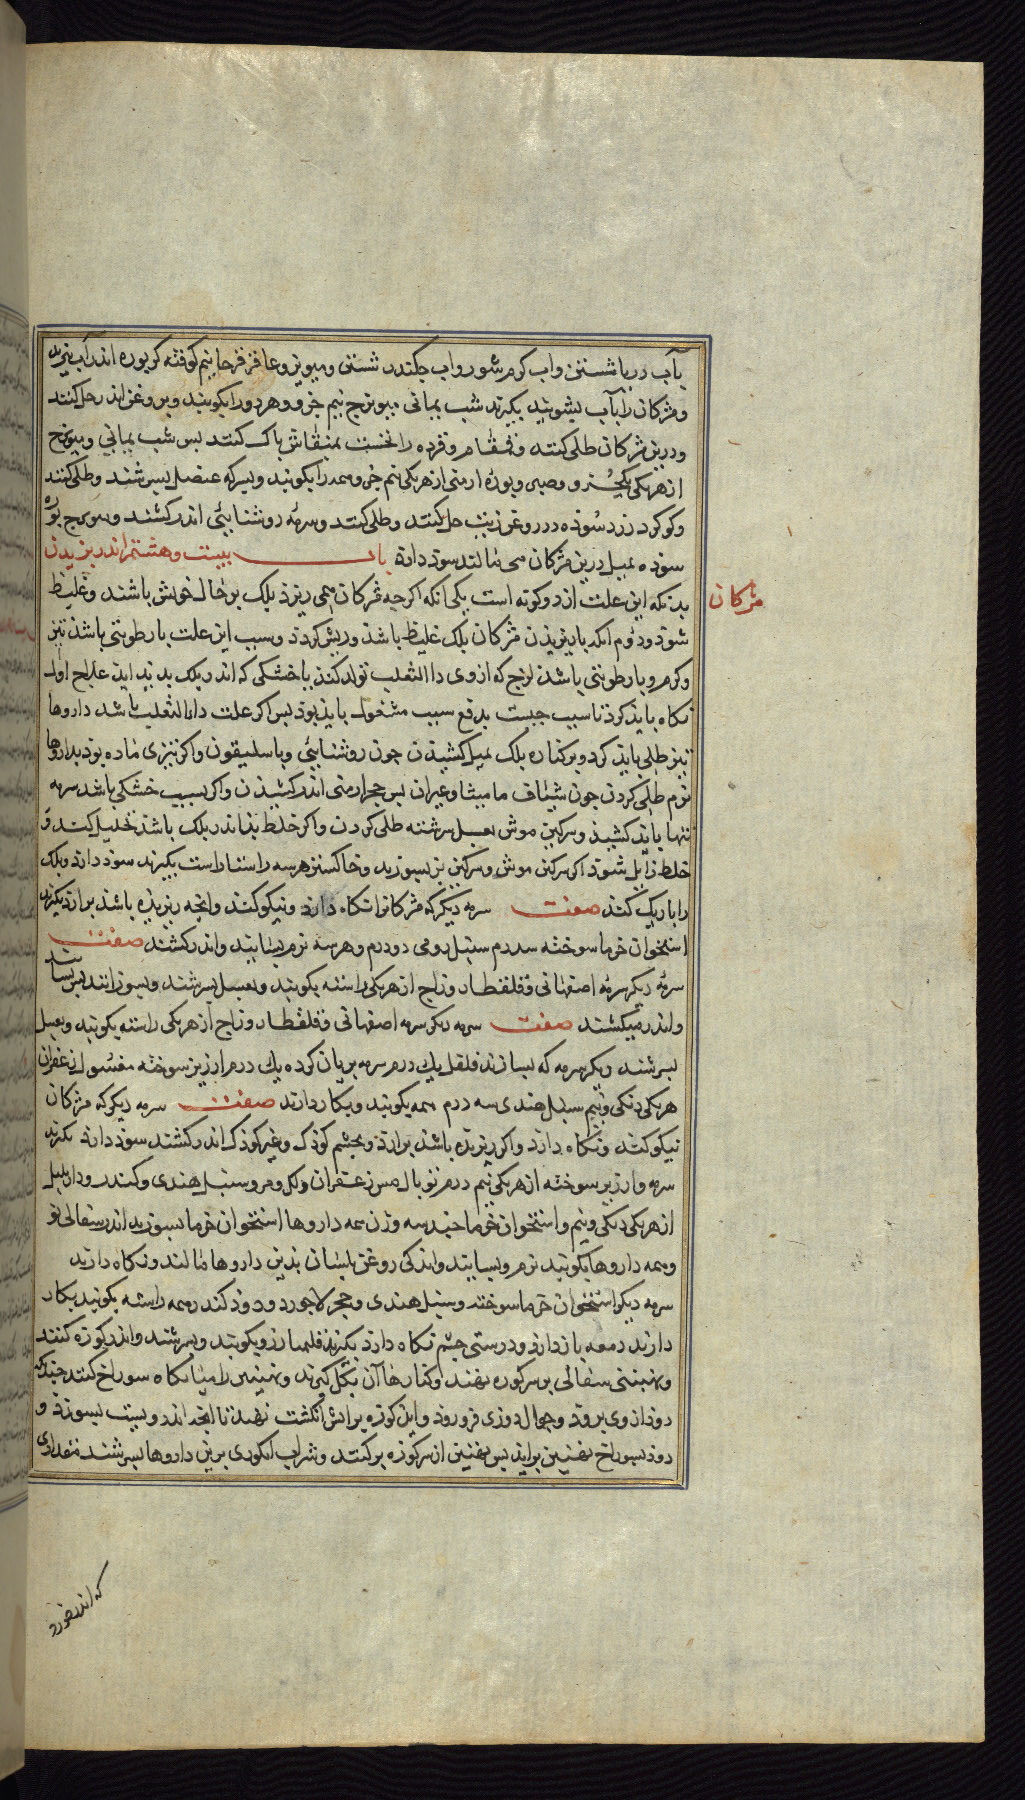 بآب دریا شستن وآب کرم شور وآب چکندر شستن ومیویزو عاقرقرحا نیم کوفته کربوره اندر آب پزند
ومژکان رابآب بشویند بکیرند شب یمانی میویزج نیم جزو وهردورا بکوبند وبروغن اندر حل کنند
ودربن مژکان طلی کنند وقمقام وقرده رانخست بمنقاش پاک کنند بس شب یمانی ومیویزج
ازهریکی یکجزو وصبر وبوره ارمنی ازهریکی نیم جزو همه رابکوبند وبسرکه عنصل بسرشند وطلی کنند
وکوکرد زرد سوده در روغن زیت حل کنند وطلی کنند وسرمه روشنایی اندر کشند ومیویزج بوره
سوده بمیل دربن مژکان می مالند سود دارد باب بیست وهشتم اندر ریزیدن
مژکان
بدانکه این علت ازدوکونه است یکی انکه اکرچه مژکان همی ریزد پلک برحال خویش باشد وغلیظ
نشود ودوم انکه باریزیدن مژکان پلک غلیظ باشد وریش کردد وسبب این علت یارطوبتی باشد تیز
وکرم ویارطوبتی باشد لزج که ازوی داالثعلب تولد کند یاخشکی که اندر پلک بدید اید علاج اول
نکاه باید کرد تاسبب چیست بدفع سبب مشغول باید بود بس اکر علت داءالثعلب باشد داروها
تیز طلی باید کرد وبرکناره پلک بمیل کشیدن چون روشنایی وباسلیقون واکر تیزی ماده بود بداروها
نرم طلی کردن چون شیاف مامیثا وعیران بس حجر ارمنی اندر کشیدن واکر سبب خشکی باشد سرمه
تنها باید کشید وسرکین موش بعسل سرشته طلی کردن واکر خلط بد اندر پلک باشد تحلیل کند و
خلط زایل شود اکر سرکین موش وسرکین بز بسوزند وخاکستر هرسه راستاراست بکیرند سود دارد وپلک
راباریک کند صفت سرمه دیکر که مژکانرا نکاه دارد ونیکو کند وانچه ریزیده باشد برارد بکیرند
استخوان خرما سوخته سه درم سنبل رومی دودرم وهرسه نرم بسایند واندر کشند صفت
سرمه دیکر سرمه اصفهانی وقلقطار وزاج ازهریکی راسته بکوبند وبعسل بسرشند وبسوزانند بس بسایند
واندر میکشند صفت سرمه دیکر سرمه اصفهانی وقلقطار وزاج ازهریکی راسته بکوبند وبعسل
بسرشند دیکر سرمه که بسازند فلفل یک درم سرمه بریان کرده یک درم ارزیز سوخته مغسول زعفران
هریکی دنکی ونیم سنبل هندی سه درم همه بکوبند وبکار دارند صفت سرمه دیکر که مژکان
نیکو کند ونکاه دارد واکر ریزیده باشد برارد وبچشم کودک وغیر کودک اندر کشند سود دارد بکیرند
سرمه وارزیز سوخته ازهریکی نیم درم توبال مس زعفران وکل ومرو سنبل هندی وکندر ودارپلپل
ازهریکی دنکی ونیم واستخوان خرما چند سه وزن همه داروها استخوان خرما بسوزند اندر سفالی نو
وهمه داروها بکوبند نرم وبسایند واندکی روغن بلسان بدین داروها مالند ونکاه دارند
سرمه دیکر استخوان خرما سوخته وسنبل هندی وحجر لاجورد ودود کندر همه راسته بکوبند بکار
دارند دمعه بازدارد ودرستی چشم نکاه دارد بکیرند قلیمیا زر وبکوبند وبسرشند واندر کوزه کنند
ونهنبنی سفالی برسر کوزه نهند وکنارهاء آن بکل کیرند ونهنبن رامیانکاه سوراخ کنند چندانکه
دود ازوی برود وجوال دوزی فرورود واین کوزه برآتش انکشت نهند تا انچه اندرویست بسوزد و
دود بسوراخ نهنبن براید بس نهنبن ازسر کوزه برکنند وشراب انکوری برین داروها بسرشند مقداری
که اندر خورد